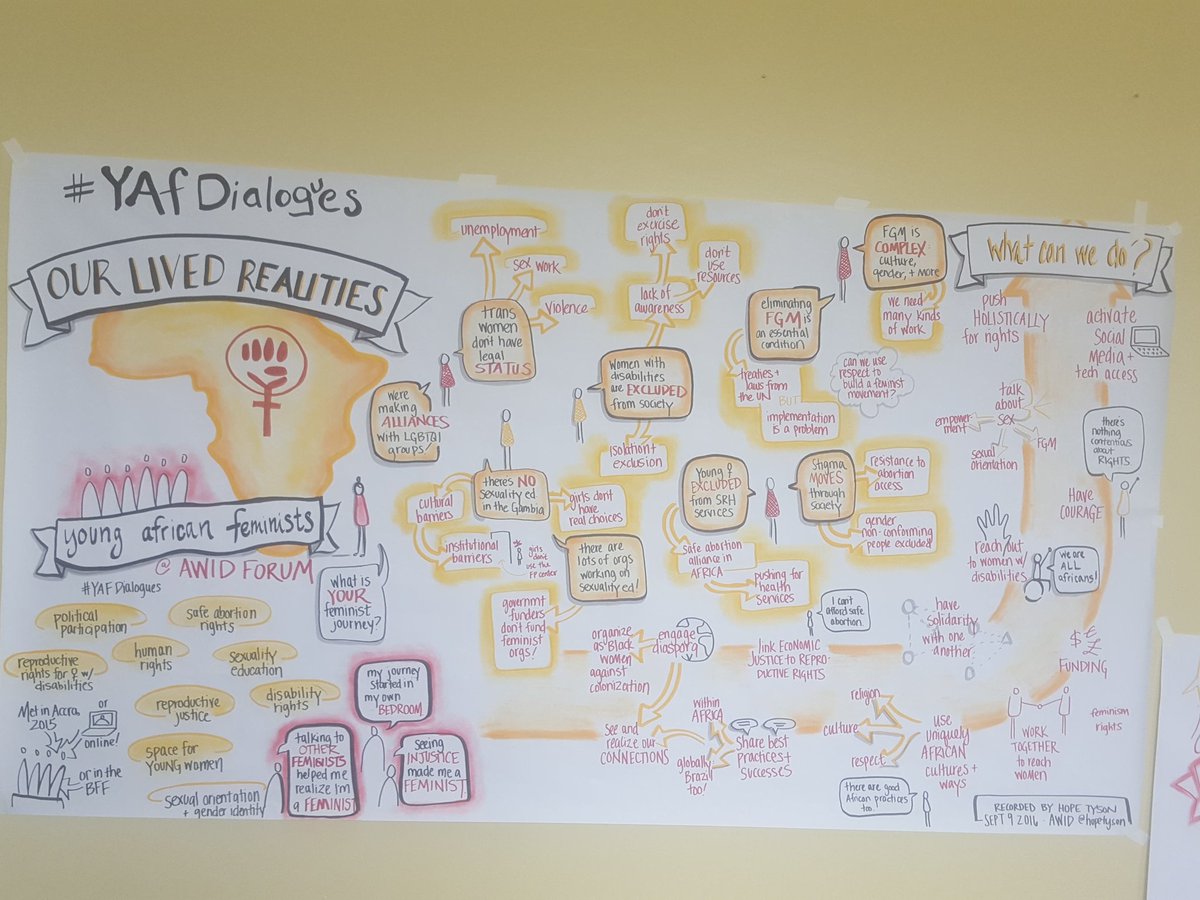 #YAf Dialogues
OUR LIVED REALITIES
young african feminists
@ AWID FORUM
#YAFDialogues
political
participation
safe abortion
rights
human
rights
sexuality
education
reproductive
rights for ♀ w/
disabilities
reproductive
justice
disability
rights
Met in Accra,
2015
or
online!
or in the
BFF
space for
YOUNG women
sexual orientation
+ gender identity
what is
YOUR
feminist
journey?
my journey
started in
my own
BEDROOM
talking to
OTHER
FEMINISTS
helped me
realize I'm
a FEMINIST
seeing
INJUSTICE
made me a
FEMINIST
were
making
ALLIANCES
with LGBTQI
groups!
unemployment
sex work
violence
trans
women
dont have
legal
STATUS
don't
exercise
rights
don't
use
resources
lack of
awareness
Women with
disabilities
are EXCLUDED
from society
isolation +
exclusion
theres NO
sexuality ed
in the Gambia
cultural
barriers
institutional
barriers
girls don't
use the
FP center
girls dont
have
real choices
there are
lots of orgs
working on
sexuality ed!
governmt
funders
don't fund
feminist
orgs!
FGM is
COMPLEX-
culture,
gender, + more
we need
many kinds
of work
eliminating
FGM is
an essential
condition
treaties +
laws from
the UN
BUT
implementation
is a problem
can we use
respect to
build a feminist
movement?
Young ♀
EXCLUDED
from SRH
services
safe abortion
alliance in
AFRICA
pushing for
health
services
Stigma
MOVES
through
society
resistance to
abortion
access
gender
non-conforming
people excluded!
I can't
afford safe
abortion.
what can we do?
push
HOLISTICALLY
for rights
activate
Social
Media +
tech access
talk
about
sex
empower-
ment
sexual
orientation
FGM
there's
nothing
contentious
about
RIGHTS
HAVE
COURAGE
reach out
to women w/
disabilities
we are
ALL
africans!
have
solidarity
with one
another
$ € £
FUNDING
link ECONOMIC
JUSTICE to REPRO-
DUCTIVE RIGHTS
engage
diaspora
organize
as Black
women
against
colonization
See and
realize our
CONNECTIONS
within
AFRICA
globally
Brazil
too!
Share best
practices +
successes
religion
culture
respect
use
uniquely
AFRICAN
cultures +
ways
there are good
African practices
too!
WORK
TOGETHER
to reach
women
feminism
rights
RECORDED BY HOPE TYSON
SEPT 9 2016 · AWID @hopetyson